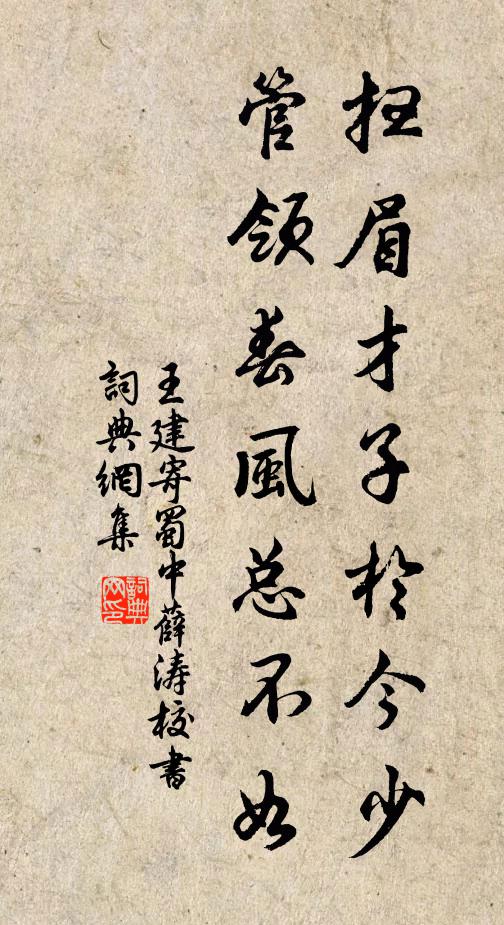 扫眉才子於今少
管领春風总不如
王建寄蜀中薛涛校書
詞典網集
詞典